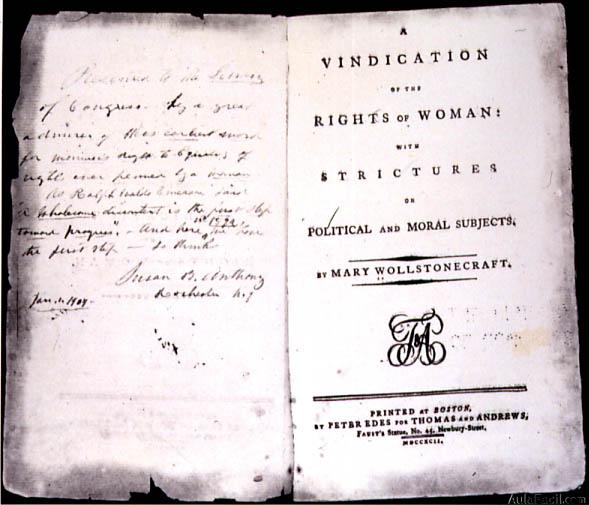 Presented to the Library
of Congress by a great
admirer of this earliest word
for woman's right to Equality of
rights ever penned by a woman
As Ralph Waldo Emerson said
"A wholesome discontent is the first step
toward progress" - And here in 1792 we have
the first step - so thinks
Susan B. Anthony
Rochester N.Y
Jan. 1. 1904.
A
VINDICATION
OF THE
RIGHTS OF WOMAN:
WITH
STRICTURES
ON
POLITICAL AND MORAL SUBJECTS.
BY MARY WOLLSTONECRAFT.
T&A
PRINTED AT BOSTON,
BY PETER EDES FOR THOMAS AND ANDREWS,
FAUST'S Statue, No. 45, Newbury-Street,
MDCCXCII.
AulaFacil.com